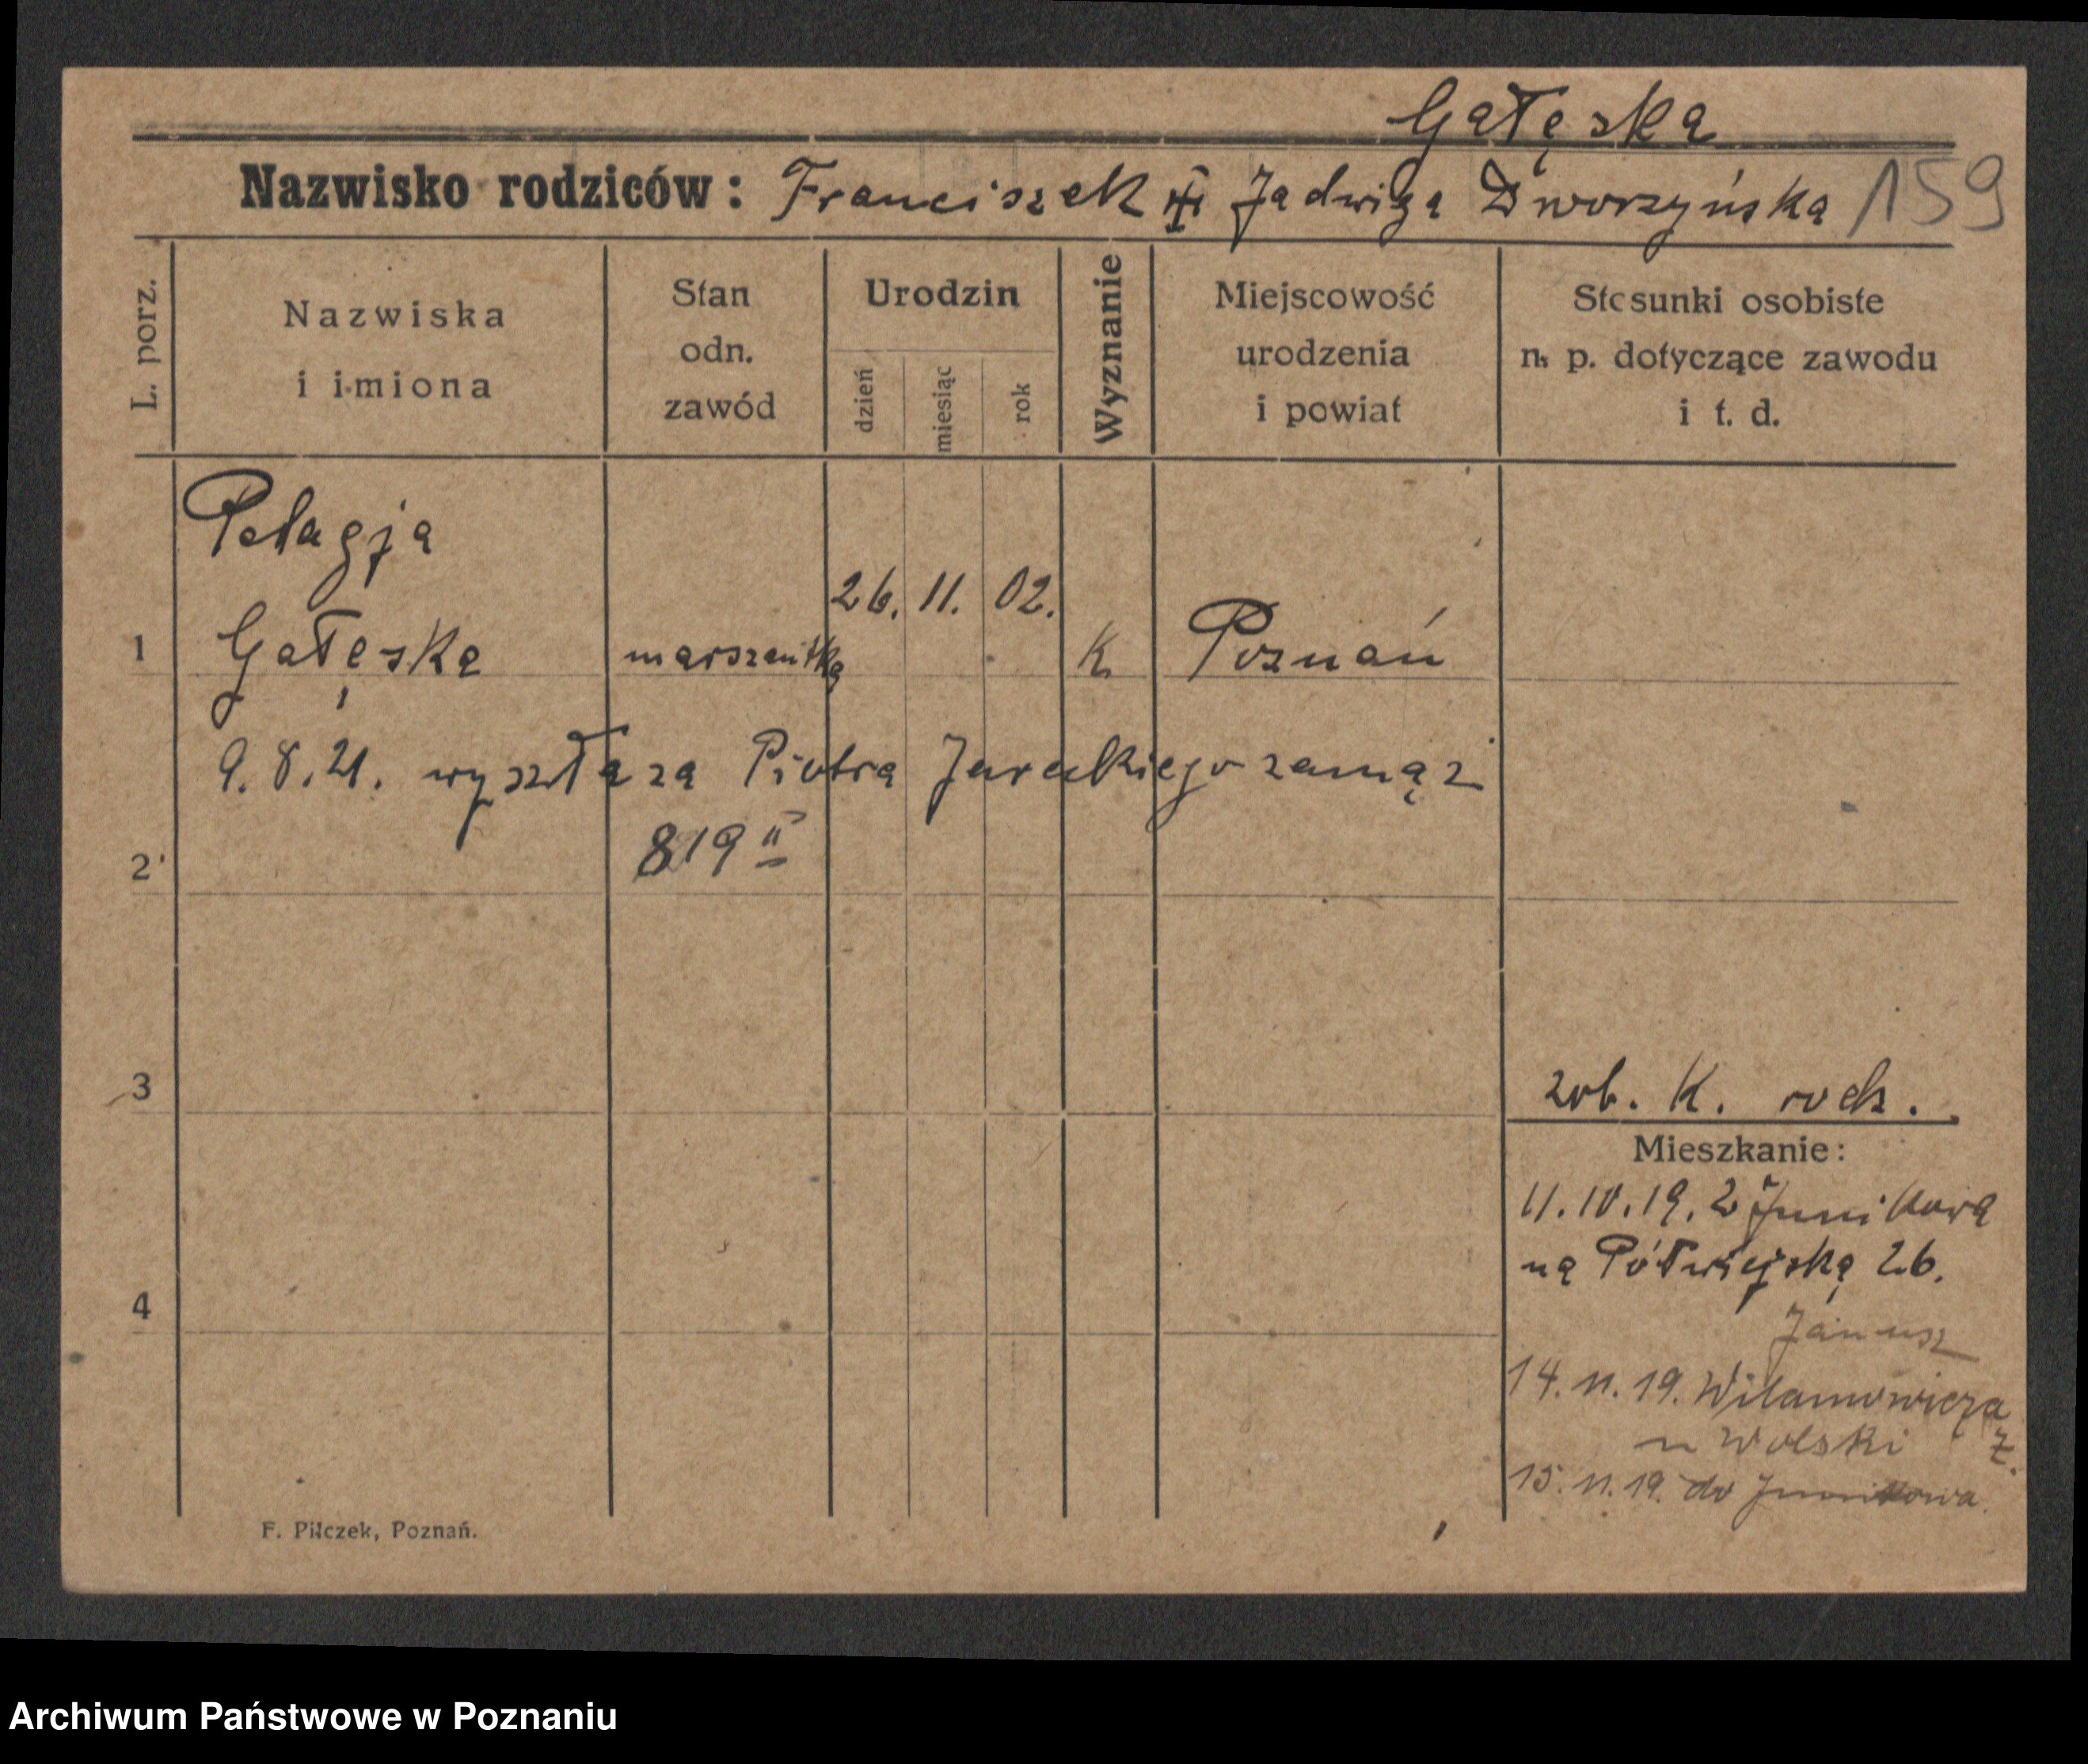 Gałęska
Nazwisko rodziców: Franciszek Jadwiga Dworzyńska 159
L. porz.
Nazwiska
i imiona
Stan
odn.
zawód
Urodzin
dzień
miesiąc
rok
Wyznanie
Miejscowość
urodzenia
i powiat
Stosunki osobiste
n. p. dotyczące zawodu
i t. d.
Pelagja
26. 11. 02.
1 Gałęska K. Poznań
9.8.21. wyszła za Piotra Jareckiego zamąż
819 II
2
3
zob. K. rodz.
Mieszkanie:
11.10.19. z Junikowa
na Półwiejską 26.
4
Janusz
14. 11. 19. Wilamowicza
u Wolski Ż.
15. 11. 19. do Junikowa.
F. Pilczek, Poznań.
Archiwum Państwowe w Poznaniu